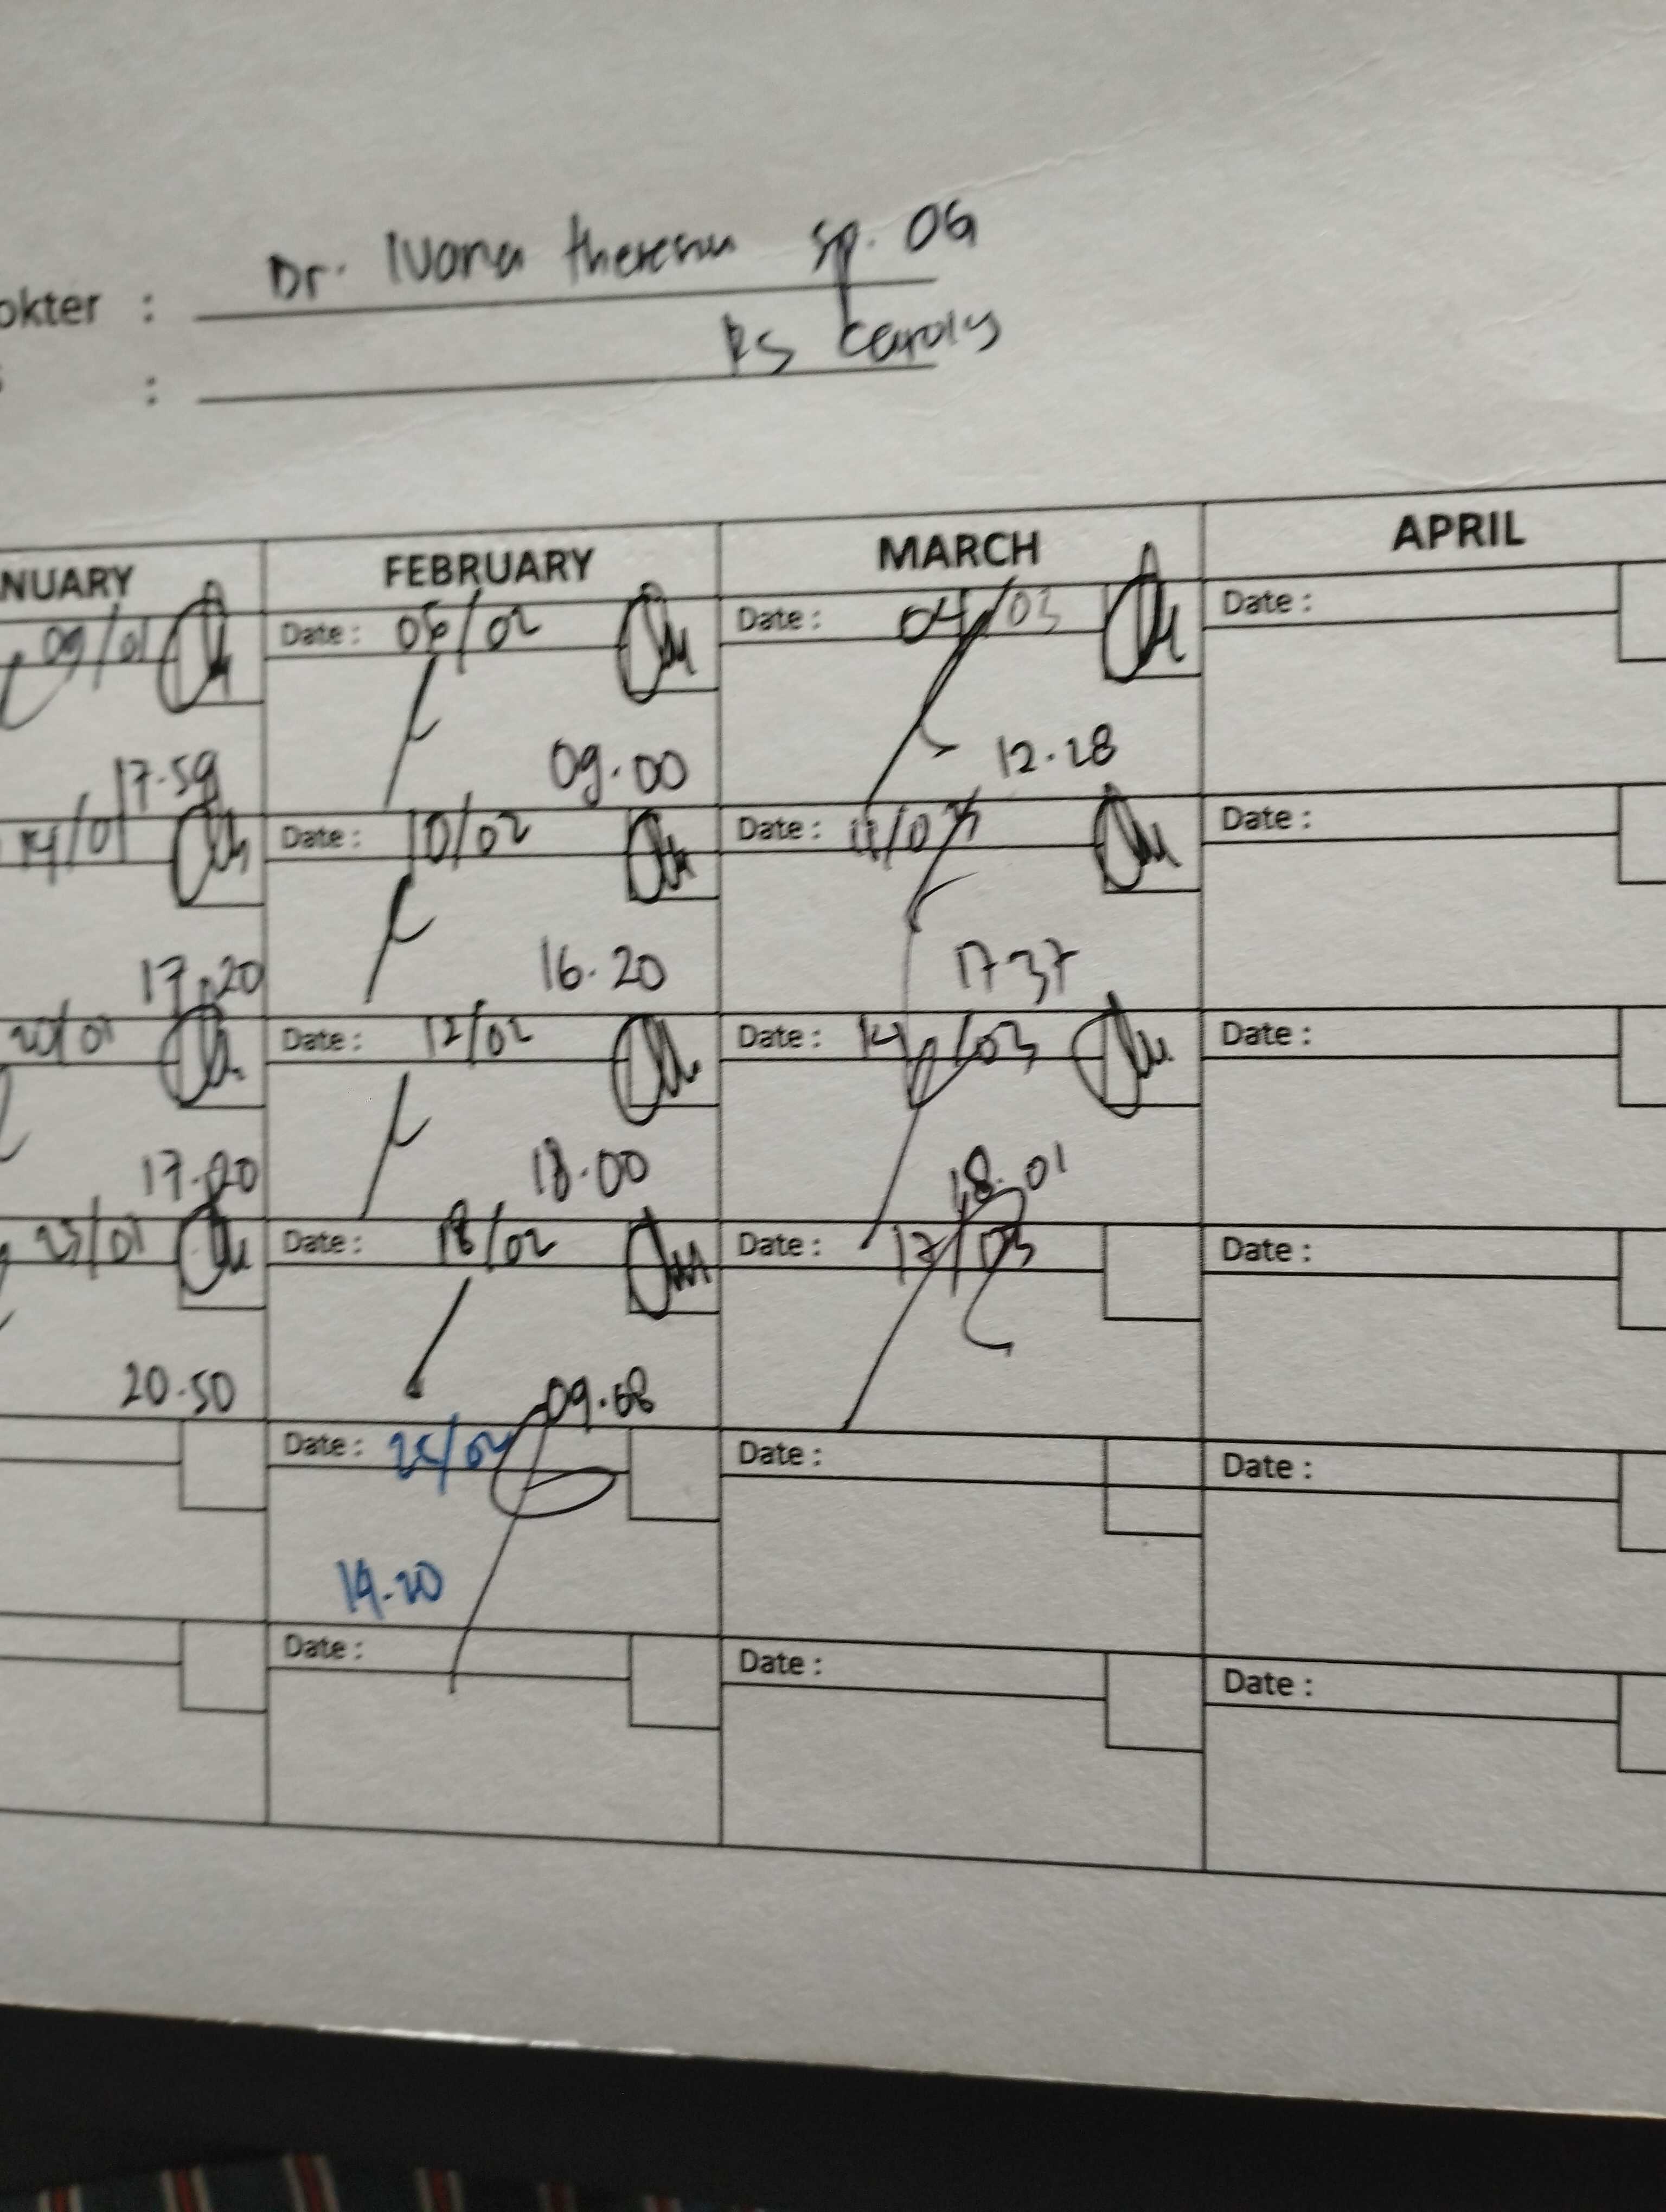 okter : Dr. Ivana theresia sp. OG
: RS Carolus
NUARY FEBRUARY MARCH APRIL
09/01 Date : 06/02 Date : 04/03 Date :
17.59 09.00 12.28
14/01 Date : 10/02 Date : 11/03 Date :
17.20 16.20 17 37
20/01 Date : 12/02 Date : 14/03 Date :
17.20 18.00 18.01
Date : 18/02 Date : 17/03 Date :
20.50 09.08
Date : Date : Date :
19.20
Date : Date : Date :